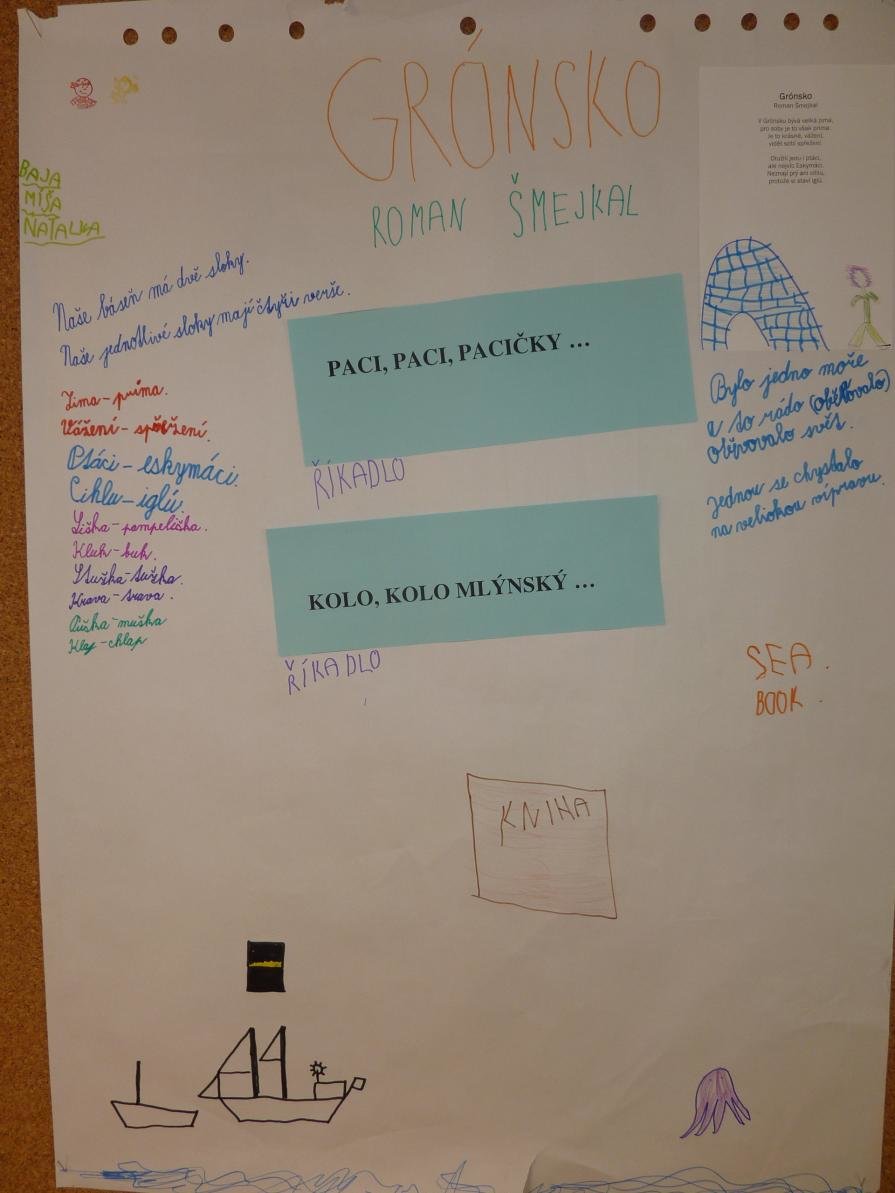 GRÓNSKO
ROMAN ŠMEJKAL
BAJA
MÍŠA
NATALKA
Naše báseň má dvě sloky.
Naše jednotlivé sloky mají čtyři verše.
Zima-prima.
Vážení-spřežení.
Ptáci-eskymáci.
Ciklu-iglú.
Liška-pampeliška.
Kluk-buk.
Stužka-tužka.
Krava-trava.
Puška-muška
Klap-chlap
PACI, PACI, PACIČKY …
ŘÍKADLO
KOLO, KOLO MLÝNSKÝ …
ŘÍKADLO
Grónsko
Roman Šmejkal
V Grónsku bývá velká zima,
pro soby je to však prima.
Je to krásné, vážení,
vidět sobí spřežení.
Otužilí jsou i ptáci,
ale nejvíc Eskymáci.
Neznají prý ani cihlu,
protože si staví iglú.
Bylo jedno moře
a to rádo
oběpovalo svět.
Jednou se chystalo
na velikou výpravu.
SEA.
BOOK.
KNIHA